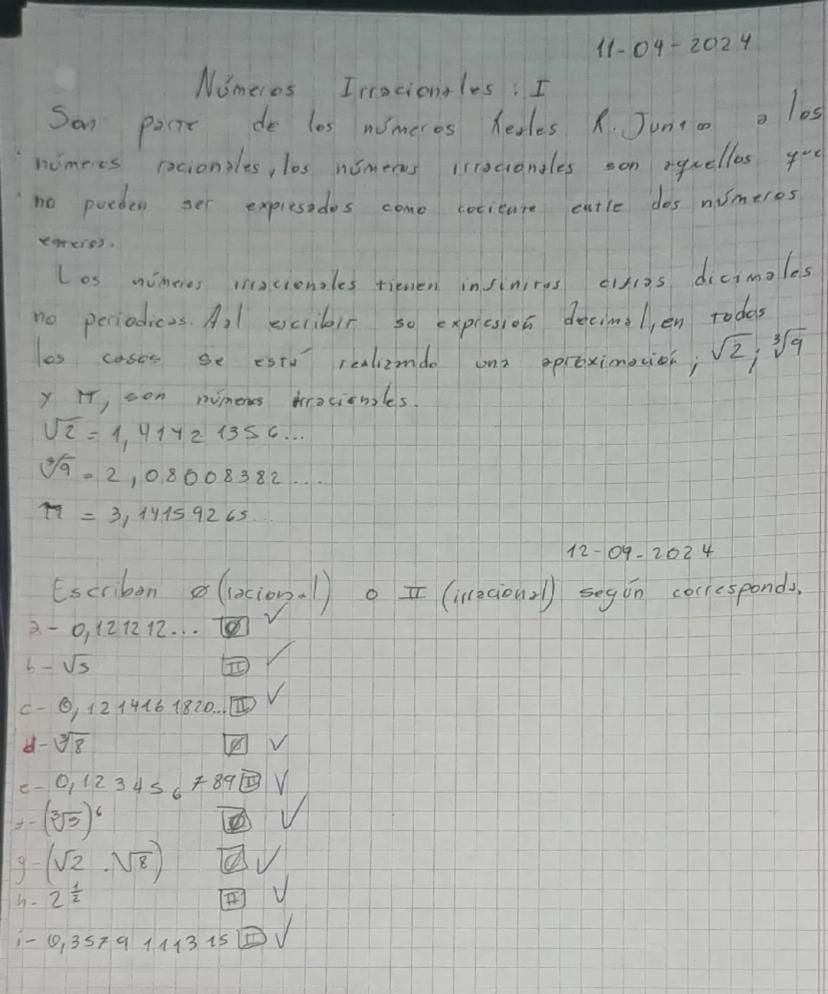 11-04-2024
Números Irracionales: I
Son parte de los números Reales R. Junto a los
números racionales, los números irracionales son aquellos que
no pueden ser expresados como cociente entre dos números
enteros.
Los números irracionales tienen infinitas cifras dicimales
no periodicas. Al escribir so expresión decimal, en todos
los casos se está realizando una aproximación; √2; ∛9
y π, son números irracionales.
√2 = 1,41421356...
∛9 = 2,08008382...
π = 3,14159265...
12-09-2024
Escriban ∅ (racional) o II (irracional) según corresponda.
a- 0,121212... ∅ ✓
b- √5 II ✓
c- 0,1214161820... II ✓
d- ∛8 ∅ ✓
e- 0,123456789 II ✓
f- (∛5)⁶ ∅ ✓
g- (√2 . √8) ∅ ✓
h- 2^½ II ✓
i- 0,3579111315 II ✓